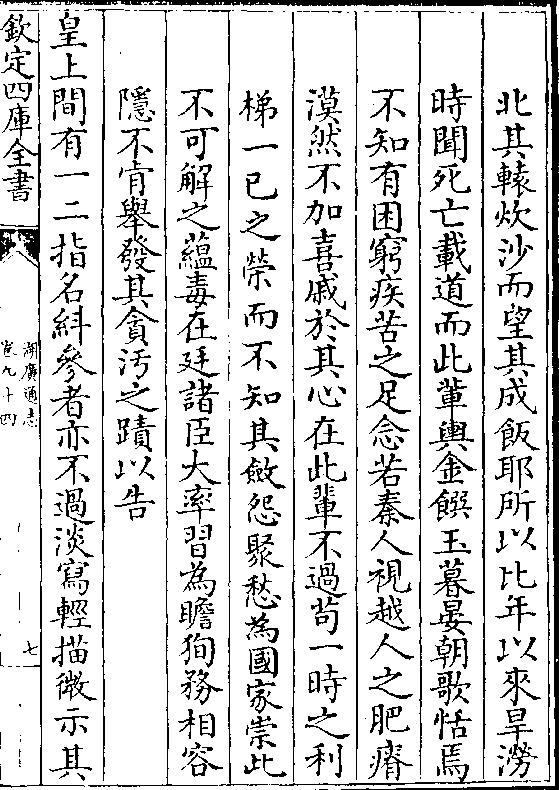 北其轅炊沙而望其成飯耶所以比年以來旱澇
時聞死亡載道而此軰輿金饌玉暮晏朝歌恬焉
不知有困窮疾苦之足念若秦人視越人之肥瘠
漠然不加喜戚於其心在此輩不過苟一時之利
梯一已之榮而不知其斂怨聚愁為國家祟此
不可解之藴毒在廷諸臣大率習為瞻狥務相容
隱不肯舉發其貪汚之蹟以告
皇上間有一二指名糾參者亦不過淡寫輕描微示其
欽定四庫全書
湖廣通志
卷九十四
七